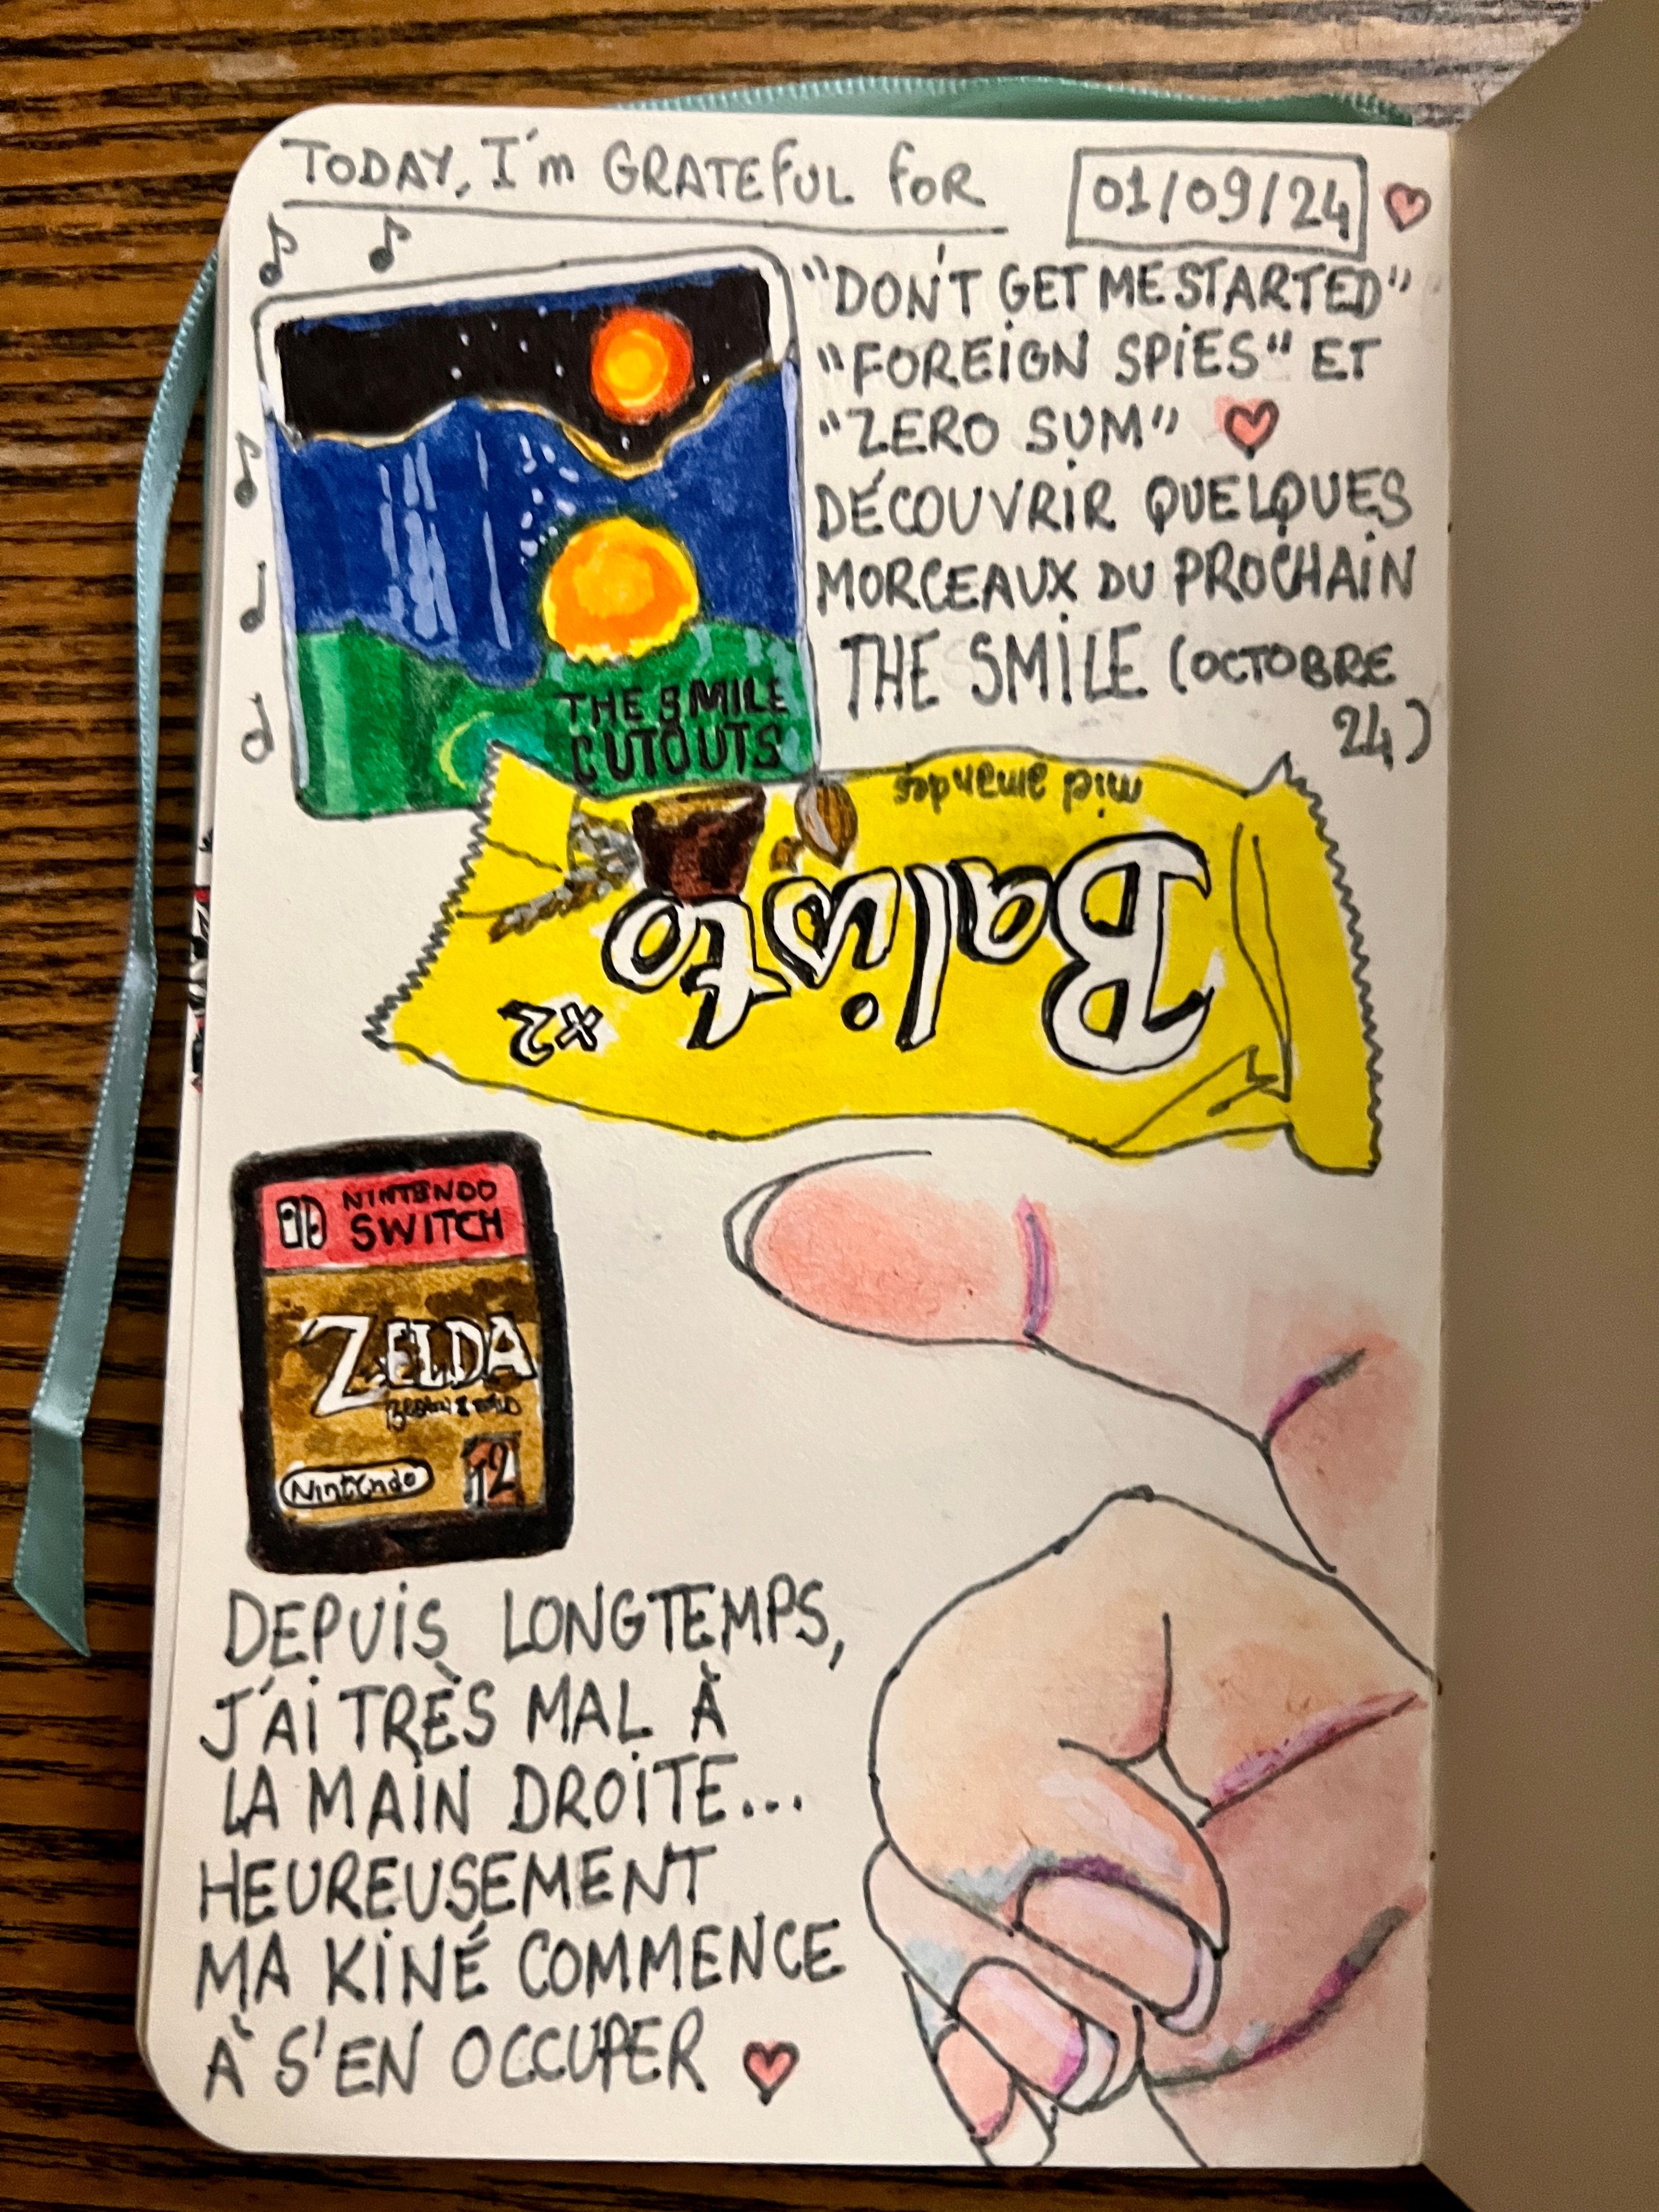 TODAY, I'm GRATEFUL FOR
01/09/24
"DON'T GET ME STARTED"
"FOREIGN SPIES" ET
"ZERO SUM"
DÉCOUVRIR QUELQUES
MORCEAUX DU PROCHAIN
THE SMILE (OCTOBRE
24)
THE SMILE
CUTOUTS
miel amandes
Balisto
x2
NINTENDO
SWITCH
ZELDA
Nintendo
12
DEPUIS LONGTEMPS,
J'AI TRÈS MAL À
LA MAIN DROITE...
HEUREUSEMENT
MA KINÉ COMMENCE
À S'EN OCCUPER